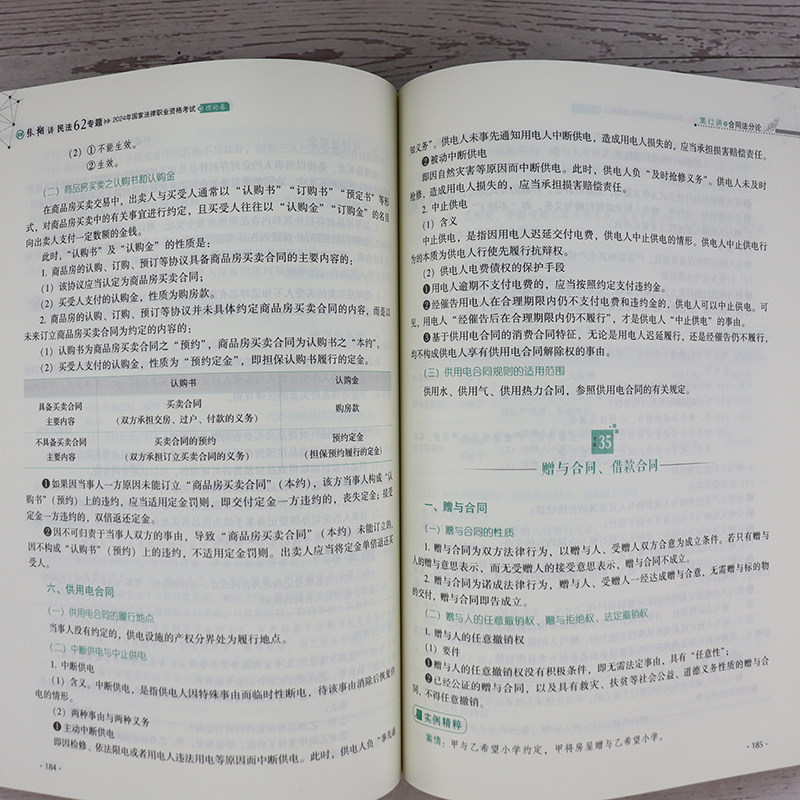 张翔讲民法62专题 ▸▸ 2024年国家法律职业资格考试 理论卷
(2) ①不能生效。
②生效。
(二) 商品房买卖之认购书和认购金
在商品房买卖交易中，出卖人与买受人通常以“认购书”“订购书”“预定书”等形
式，对商品房买卖中的有关事宜进行约定，且买受人往往以“认购金”“订购金”的名目
向出卖人支付一定数额的金钱。
此时，“认购书”及“认购金”的性质是：
1. 商品房的认购、订购、预订等协议具备商品房买卖合同的主要内容的：
(1) 该协议应当认定为商品房买卖合同；
(2) 买受人支付的认购金，性质为购房款。
2. 商品房的认购、订购、预订等协议并未具体约定商品房买卖合同的内容，而是以
未来订立商品房买卖合同为约定的内容的：
(1) 认购书为商品房买卖合同之“预约”，商品房买卖合同为认购书之“本约”。
(2) 买受人支付的认购金，性质为“预约定金”，即担保认购书履行的定金。
认购书 认购金
具备买卖合同主要内容 买卖合同（双方承担交房、过户、付款的义务） 购房款
不具备买卖合同主要内容 买卖合同的预约（双方承担订立买卖合同的义务） 预约定金（担保预约履行的定金）
❶如果因当事人一方原因未能订立“商品房买卖合同”(本约)，该方当事人构成“认
购书”(预约) 上的违约，应当适用定金罚则，即交付定金一方违约的，丧失定金；接受
定金一方违约的，双倍返还定金。
❷因不可归责于当事人双方的事由，导致“商品房买卖合同”(本约) 未能订立的，
因不构成“认购书”(预约) 上的违约，不适用定金罚则。出卖人应当将定金单倍退还买
受人。
六、供用电合同
(一) 供用电合同的履行地点
当事人没有约定的，供电设施的产权分界处为履行地点。
(二) 中断供电与中止供电
1. 中断供电
(1) 含义。中断供电，是指供电人因特殊事由而临时性断电，待该事由消除后恢复供
电的情形。
(2) 两种事由与两种义务
❶主动中断供电
即因检修、依法限电或者用电人违法用电等原因而中断供电。此时，供电人负“事先通
· 184 ·
第12讲 合同法分论
知义务”。供电人未事先通知用电人中断供电，造成用电人损失的，应当承担损害赔偿责任。
❷被动中断供电
即因自然灾害等原因而中断供电。此时，供电人负“及时抢修义务”。供电人未及时
抢修，造成用电人损失的，应当承担损害赔偿责任。
2. 中止供电
(1) 含义
中止供电，是指因用电人迟延交付电费，供电人中止供电的情形。供电人中止供电行
为的本质为供电人行使先履行抗辩权。
(2) 供电人电费债权的保护手段
❶用电人逾期不支付电费的，应当按照约定支付违约金。
❷经催告用电人在合理期限内仍不支付电费和违约金的，供电人可以中止供电。可
见，用电人“经催告后在合理期限内仍不履行”，才是供电人“中止供电”的事由。
❸基于供用电合同的消费合同特征，无论是用电人迟延履行，还是经催告仍不履行，
均不构成供电人享有供用电合同解除权的事由。
(三) 供用电合同规则的适用范围
供用水、供用气、供用热力合同，参照供用电合同的有关规定。
专题 35
赠与合同、借款合同
一、赠与合同
(一) 赠与合同的性质
1. 赠与合同为双方法律行为，以赠与人、受赠人双方合意为成立条件。若只有赠与
人的赠与意思表示，而无受赠人的接受意思表示，赠与合同不成立。
2. 赠与合同为诺成法律行为，赠与人、受赠人一经达成赠与合意，无需赠与标的物
的交付，赠与合同即告成立。
(二) 赠与人的任意撤销权、赠与拒绝权、法定撤销权
1. 赠与人的任意撤销权
(1) 要件
❶赠与人的任意撤销权没有积极条件，即无需法定事由，具有“任意性”；
❷已经公证的赠与合同，以及具有救灾、扶贫等社会公益、道德义务性质的赠与合
同，不得任意撤销。
实例精粹
案情：甲与乙希望小学约定，甲将房屋赠与乙希望小学。
· 185 ·